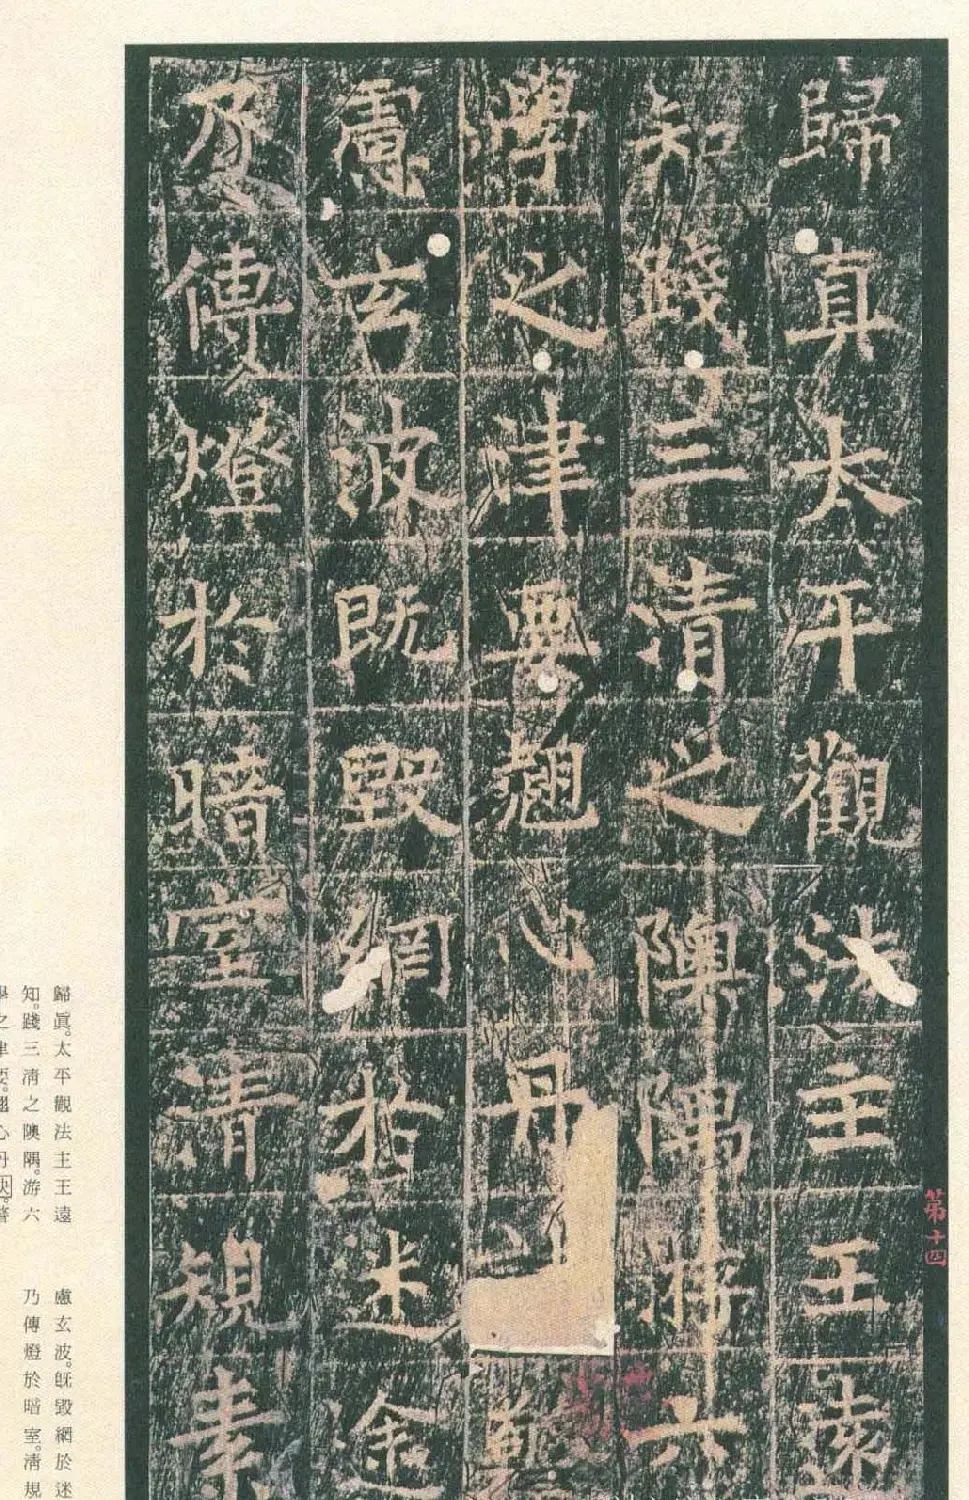 歸真太平觀法主王遠
知踐三清之隩隅游六
學之津要翹心丹
慮玄波既毀網於迷途
乃傳燈於暗室清規素
第十四
歸眞。太平觀法主王遠
知。踐三清之隩隅。游六
慮玄波。既毀網於迷
乃傳燈於暗室。清規